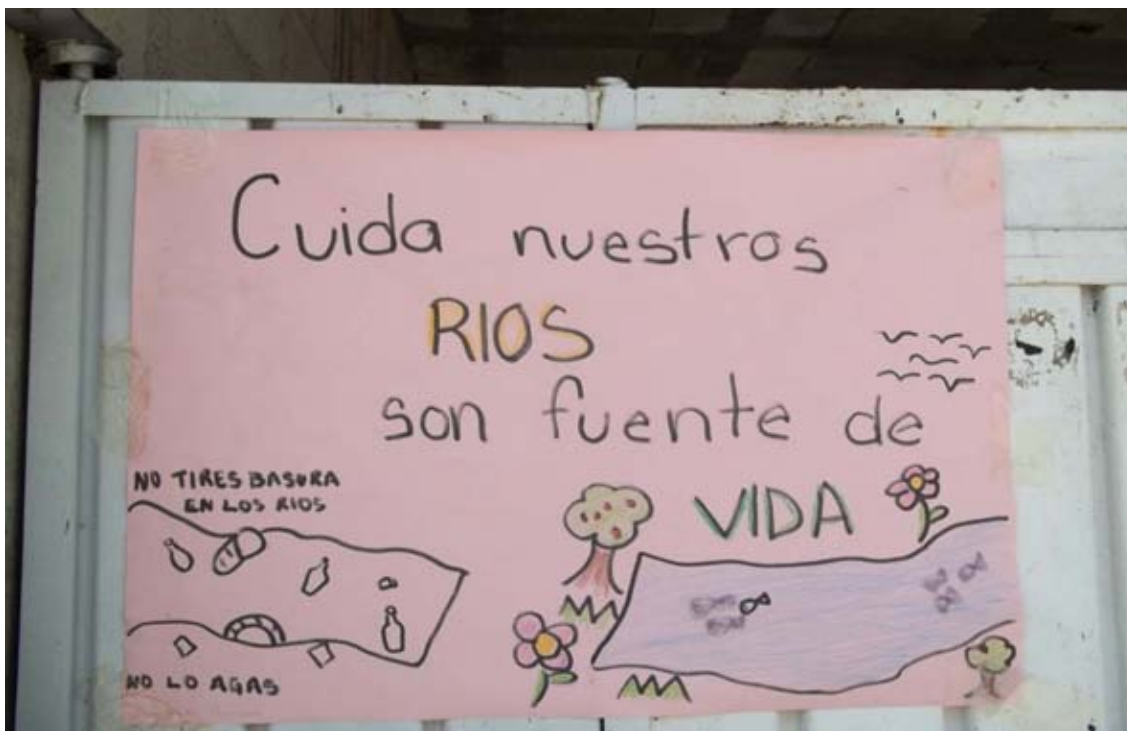 Cuida nuestros
RIOS
son fuente de
VIDA
NO TIRES BASURA
EN LOS RIOS
NO LO AGAS